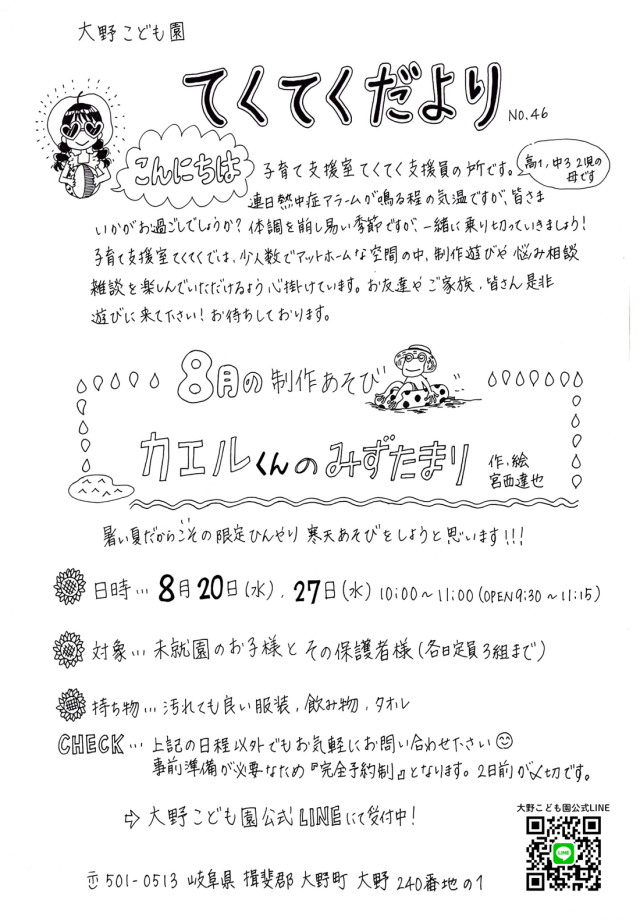 大野こども園
てくてくだより NO.46
こんにちは
子育て支援室てくてく支援員の所です。
高1,中3 2児の
母です
連日熱中症アラームが鳴る程の気温ですが、皆さま
いかがお過ごしでしょうか?体調を崩し易い季節ですが、一緒に乗り切っていきましょう!
子育て支援室てくてくでは、少人数でアットホームな空間の中、制作遊びや悩み相談
雑談を楽しんでいただけるよう心掛けています。お友達やご家族、皆さん是非
遊びに来て下さい!お待ちしております。
8月の制作あそび
カエルくんのみずたまり
作、絵
宮西達也
暑い夏だからこその限定ひんやり寒天あそびをしようと思います!!!
日時…8月20日(水)、27日(水) 10:00~11:00(OPEN9:30~11:15)
対象…未就園のお子様とその保護者様(各日定員3組まで)
持ち物…汚れても良い服装、飲み物、タオル
CHECK…上記の日程以外でもお気軽にお問い合わせ下さい
事前準備が必要なため『完全予約制』となります。2日前が〆切です。
⇨大野こども園公式LINEにて受付中!
大野こども園公式LINE
LINE
〒501-0513 岐阜県 揖斐郡 大野町 大野 240番地の1